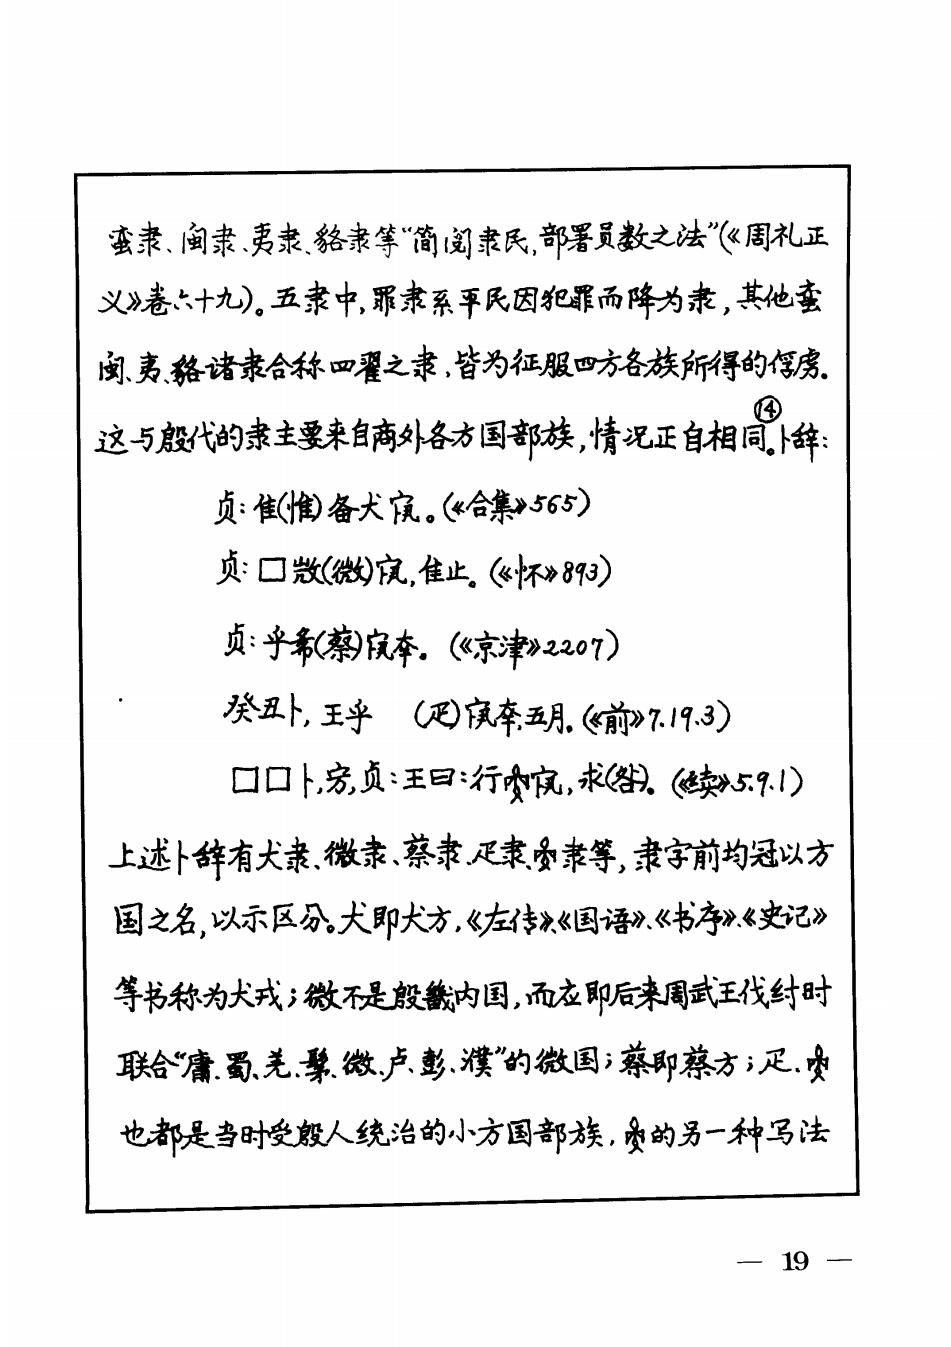 蛮隶、闽隶、夷隶、貉隶等“简阅隶民,部署员数之法”(《周礼正
义》卷六十九)。五隶中,罪隶系平民因犯罪而降为隶,其他蛮
闽、夷、貉诸隶合称四翟之隶,皆为征服四方各族所得的俘虏.
这与殷代的隶主要来自商外各方国部族,情况正自相同。⑭卜辞:
贞:隹(惟)备犬。(《合集》565)
贞:□敚(微),隹止。(《怀》893)
贞:乎希(蔡)㚔。(《京津》2207)
癸丑卜,王乎 (疋)㚔,五月.(《前》7.19.3)
□□卜,宾,贞:王曰:行,求(咎)。(《续》5.9.1)
上述卜辞有犬隶、微隶、蔡隶、疋隶、隶等,隶字前均冠以方
国之名,以示区分。犬即犬方,《左传》、《国语》、《书序》、《史记》
等书称为犬戎;微不是殷畿内国,而应即后来周武王伐纣时
联合“庸、蜀、羌、髳、微、卢、彭、濮”的微国;蔡即蔡方;疋、
也都是当时受殷人统治的小方国部族,的另一种写法
— 19 —